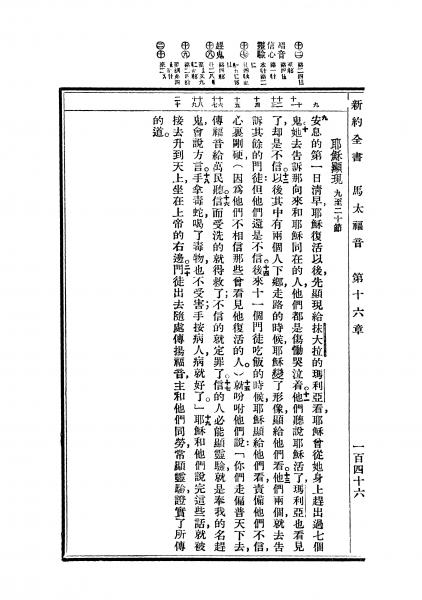 新約全書　馬太福音　第十六章　一百四十六
耶穌顯現 九至二十節
九安息的第一日清早,耶穌復活以後,先顯現給抹大拉的瑪利亞看,耶穌曾從她身上趕出過七個
鬼。十她去告訴那向來和耶穌同在的人,他們都是傷慟哭泣着。十一他們聽說耶穌活了,瑪利亞也看見
了,却是不信。十二以後其中有兩個人下鄉走路的時候,耶穌變了形像顯給他們看。十三他們兩個就去告
訴其餘的門徒,但他們還是不信。十四後來十一個門徒吃飯的時候,耶穌顯給他們看,責備他們不信,
心裏剛硬,(因爲他們不相信那些曾看見他復活的人。)十五就吩咐他們說:「你們走徧普天下去,
傳福音給萬民聽,十六信而受洗的就得救了;不信的就定罪了。十七信的人必能顯靈驗,就是奉我的名趕
鬼,會說方言,十八手拿毒蛇,喝了毒物,也不受害;手按病人,病就好了。」十九耶穌和他們說完這些話,就被
接去升到天上,坐在上帝的右邊。二十門徒出去隨處傳揚福音,主和他們同勞,常顯靈驗,證實了所傳
的道。
九
十
十一
十二
十三
十四
十五
十六
十七
十八
十九
二十
福音
信心
靈驗
趕鬼